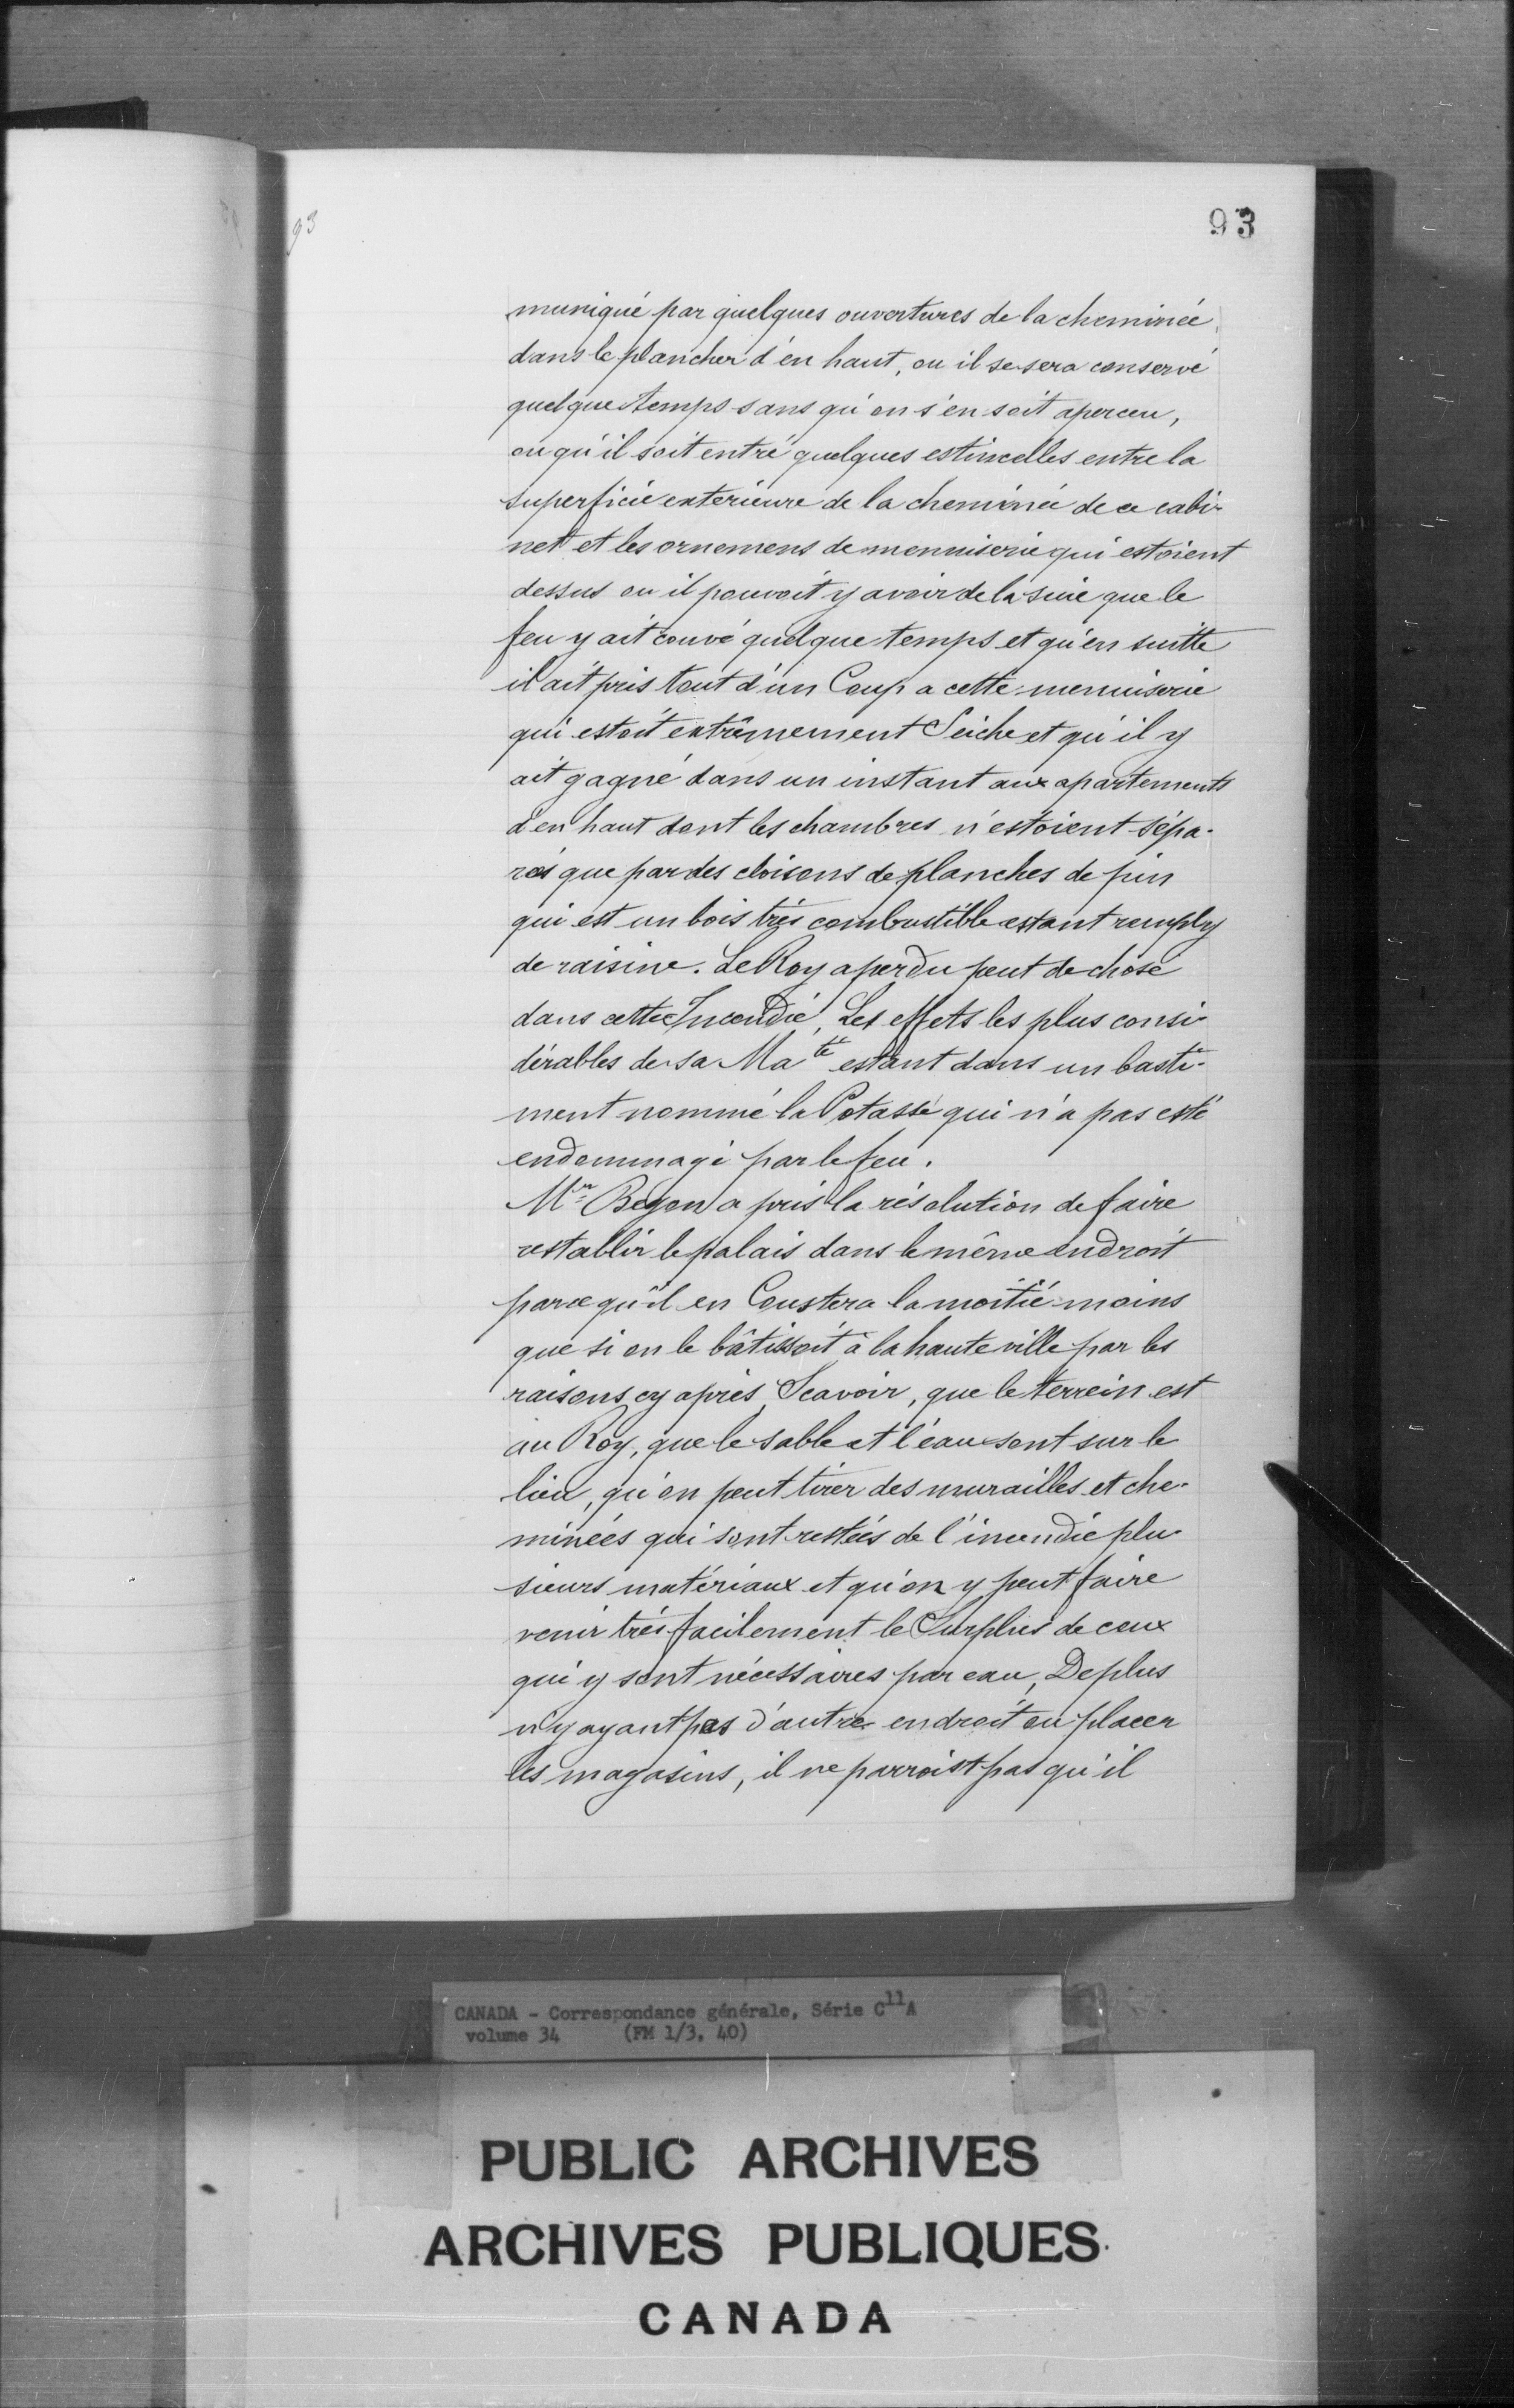 93
93
muniqué par quelques ouvertures de la cheminée
dans le plancher d'en haut, ou il se sera conservé
quelque temps sans qu'on s'en soit aperceu,
ou qu'il soit entré quelques estincelles entre la
superficie exterieure de la cheminée de ce cabi-
net et les ornemens de menuiserie qui estoient
dessus ou il pouvoit y avoir de la suie que le
feu y ait couvé quelque temps et qu'en suitte
il ait pris tout d'un Coup a cette menuiserie
qui estoit extrêmement Seiche et qu'il y
ait gagné dans un instant aux apartements
d'en haut dont les chambres n'estoient sépa-
rés que par des cloisons de planches de pin
qui est un bois très combustible estant remply
de raisine. Le Roy a perdu peut de chose
dans cette Incendie, Les effets les plus consi-
dérables de sa Ma té estant dans un basti-
ment nommé la Potasse qui n'a pas esté
endommagé par le feu.
Mr Begon a pris la résolution de faire
restablir le palais dans le même endroit
parce qu'il en Coustera la moitié moins
que si on le bâtissoit à la haute ville par les
raisons cy après Scavoir, que le terrein est
au Roy, que le sable et l'eau sont sur le
lieu, qu'on peut tirer des murailles et che-
minées qui sont restées de l'incendie plu-
sieurs matériaux et qu'on y peut faire
venir très facilement le Surplus de ceux
qui y sont nécessaires par eau, De plus
n'y ayant pas d'autre endroit ou placer
les magasins, il ne parroist pas qu'il
CANADA - Correspondance générale, Série C11A
volume 34 (FM 1/3, 40)
PUBLIC ARCHIVES
ARCHIVES PUBLIQUES
CANADA